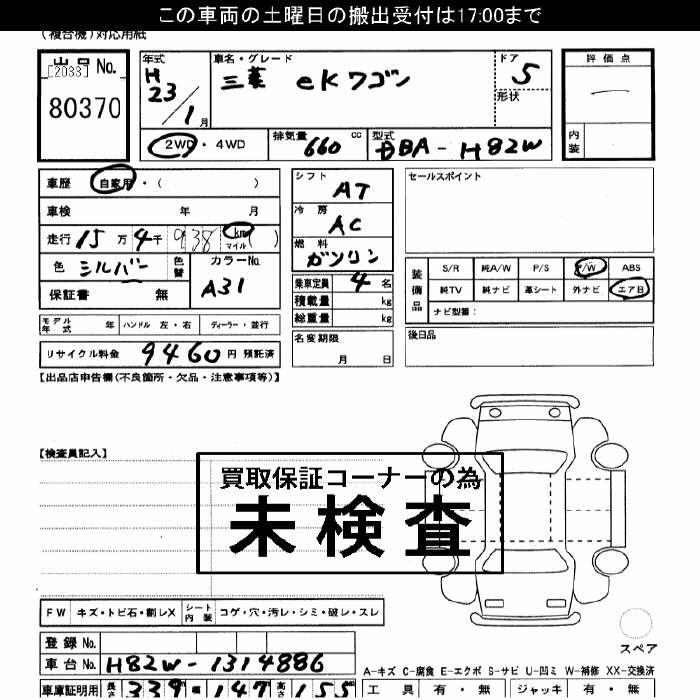 この車両の土曜日の搬出受付は17:00まで
(複合機)対応用紙
出品No.
[2033]
80370
年式
H
23/1月
車名・グレード
三菱 eKワゴン
ドア
5
形状
評価点
内装
2WD・4WD
排気量 660 cc
型式 DBA-H82W
車歴 自家用・( )
車検 年 月
走行 15万4千938 km マイル ( )
色 シルバー 色替
カラーNo. A31
保証書 無
シフト AT
冷房 AC
燃料 ガソリン
乗車定員 4名
積載量 kg
総重量 kg
セールスポイント
装備品
S/R 純A/W P/S P/W ABS
純TV 純ナビ 革シート 外ナビ エアB
ナビ型番:
モデル年式 年 ハンドル 左・右 ディーラー・並行
名変期限 月 日
後日品
リサイクル料金 9460円 預託済
【出品店申告欄(不良箇所・欠品・注意事項等)】
【検査員記入】
買取保証コーナーの為
未検査
FW キズ・トビ石・割レX シート内装 コゲ・穴・汚レ・シミ・破レ・スレ
スペア
登録No.
車台No. H82W-1314886
A-キズ C-腐食 E-エクボ S-サビ U-凹ミ W-補修 XX-交換済
車庫証明用 長さ 339 147 高さ 155
工具 有・無 ジャッキ 有・無